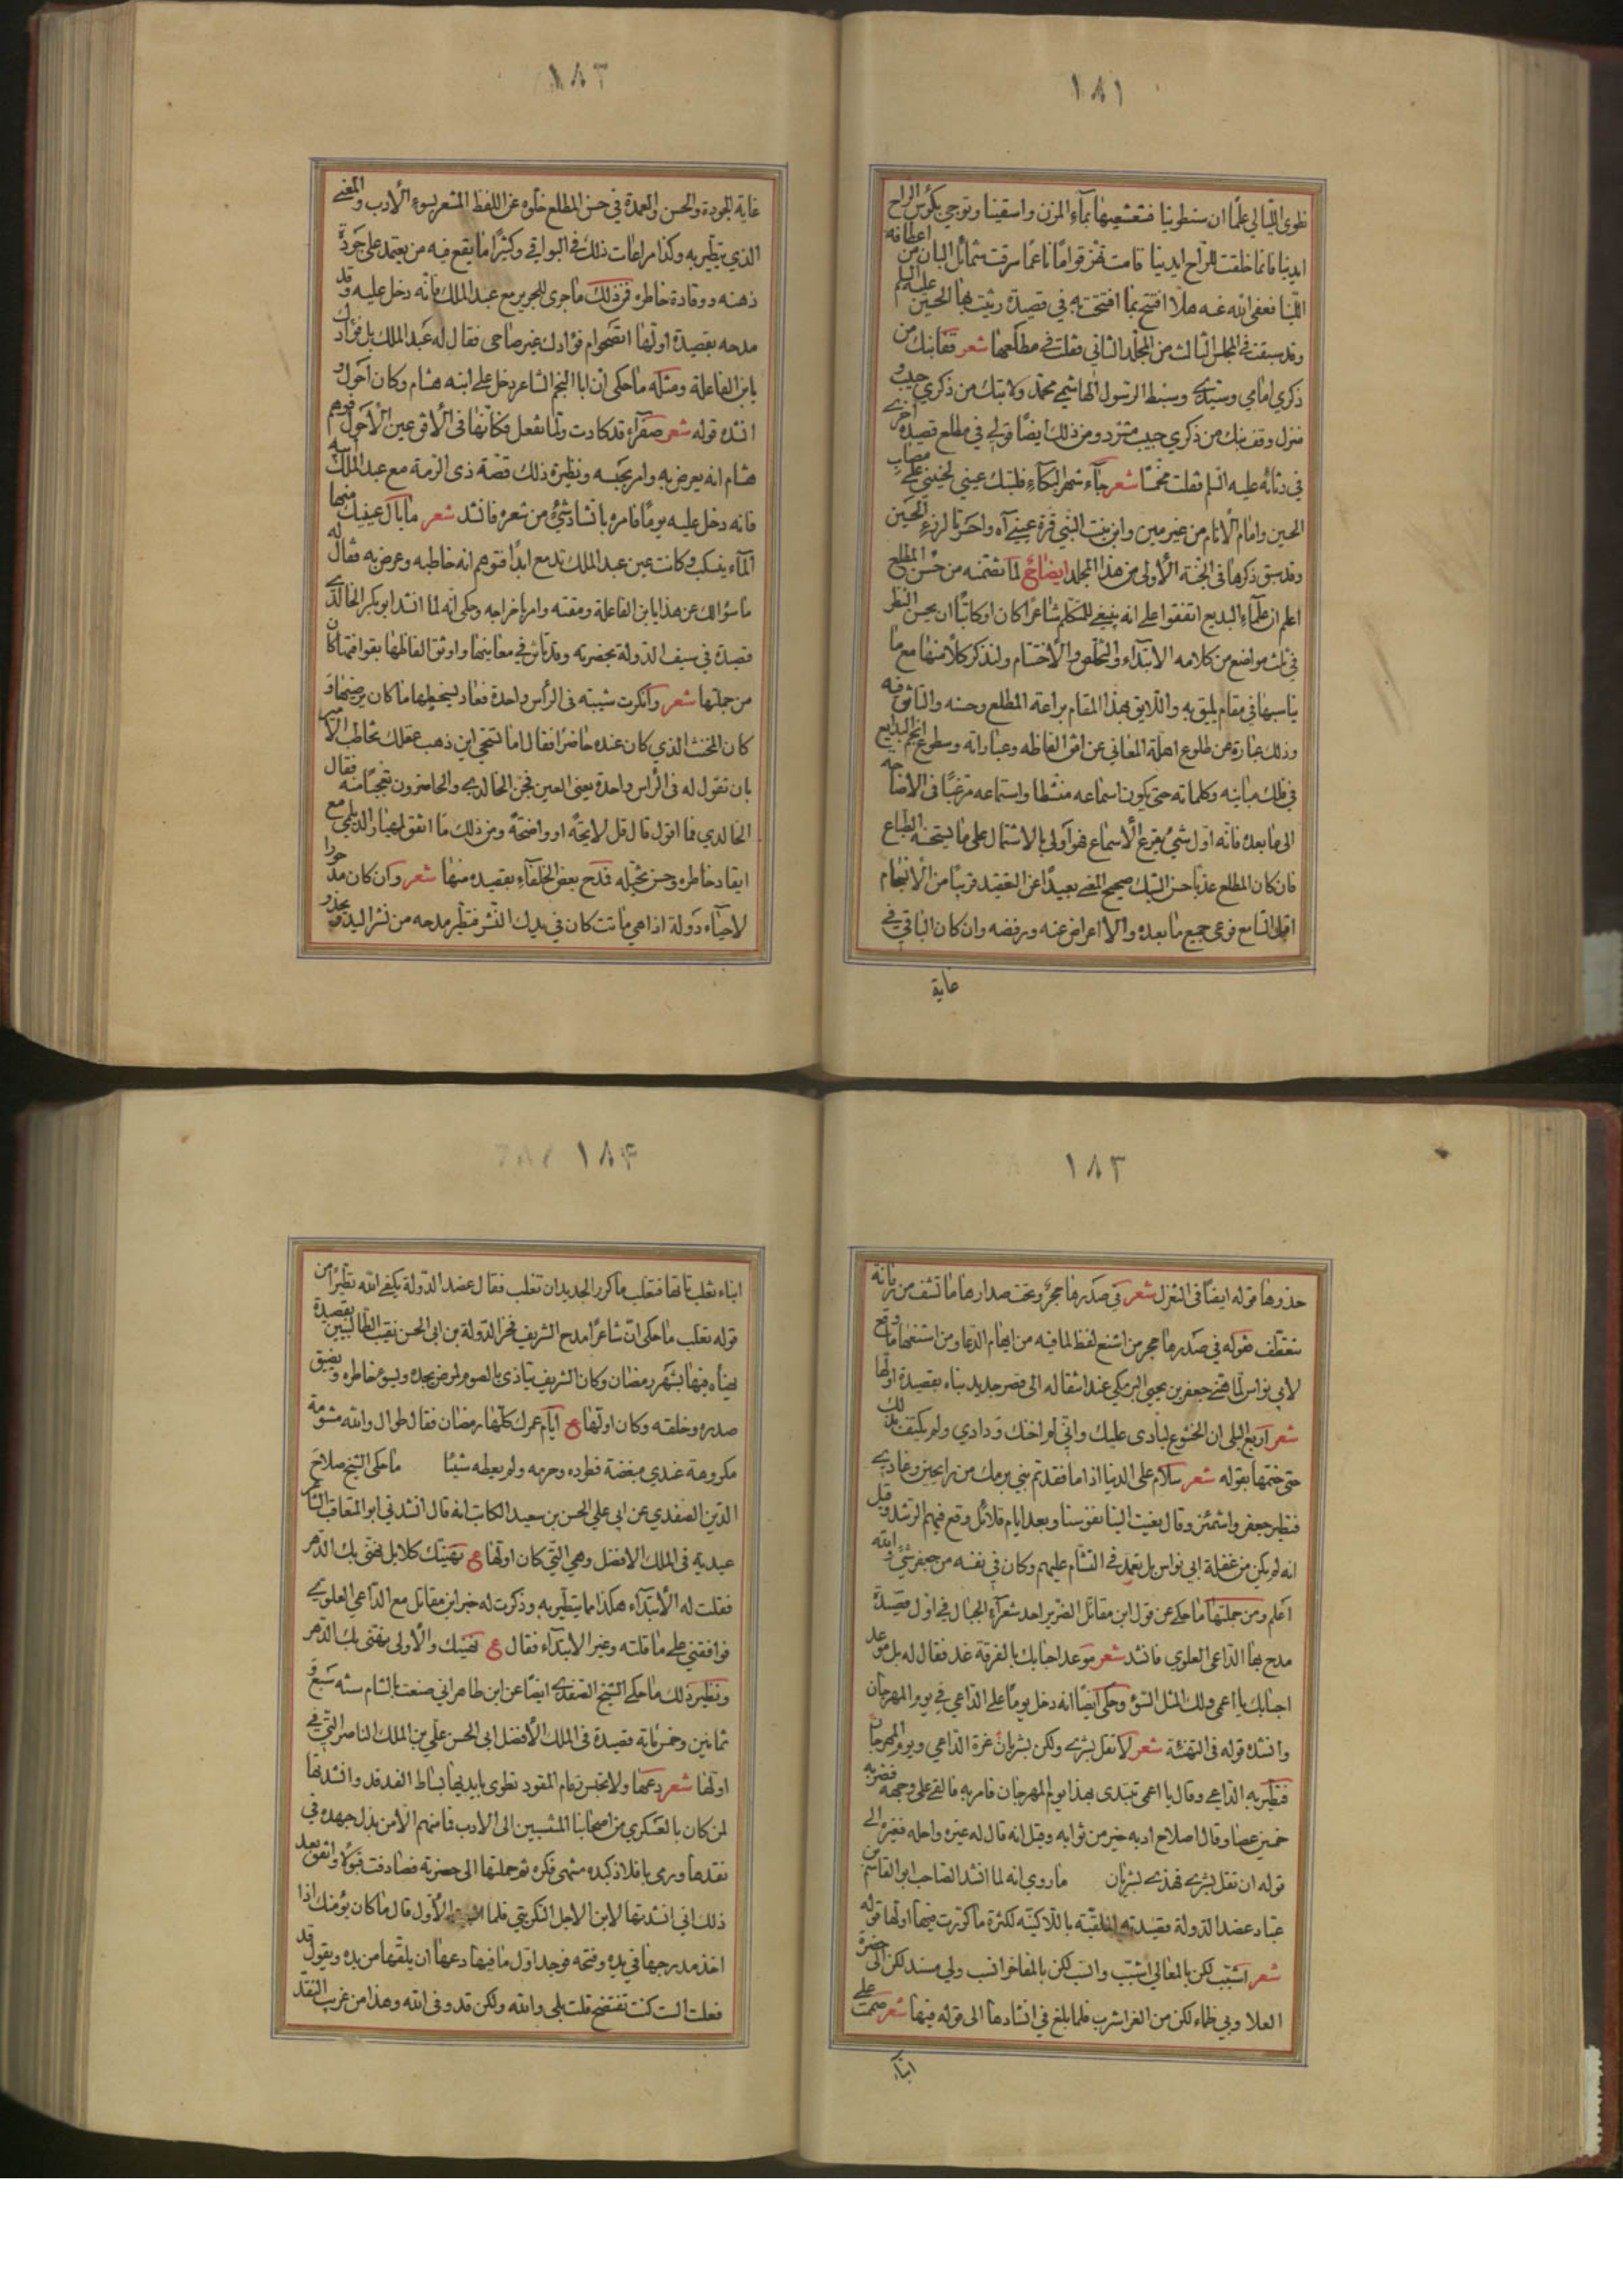 ١٨١
نطوى الليالي علمًا ان ستطوينا فشعشعيها بمآء المزن واسقينا وتوجي بكؤس الراح
ايدينا فانما خلقت للراح ايدينا قامت تهز قوامًا ناعمًا سرقت شمائل البان من اعطافه
اللينا فعفى الله عنه هلا افتتح بما افتتحت به في قصيدة رثيت بها الحسين عليه السلم
وقد سبقت في المجلس الثالث من المجلد الثاني فقلت في مطلعها شعر قفا نبك من
ذكري امامي وسيدي وسبط الرسول الهاشمي محمد ولا تبك من ذكري حبيب و
منزل وقف نبك من ذكري حبيب مشرد ومن ذلك ايضًا قولي في مطلع قصيدة اخرى
في رثائه عليه السلم فقلت مخمسًا شعر جآء شهر البكآء فلتبك عيني لحنيني على مصاب
الحسين وامام الانام من غير مين وابن بنت النبي قرة عيني آه واحسرتا لرزء الحسين
وقد سبق ذكرها في الجنة الأولى من هذا المجلد ايضاح لما تضمنه من حسن المطلع
اعلم ان علمآء البديع اتفقوا على انه ينبغي للمتكلم شاعرًا كان او كاتبًا ان يحسن النظر
في ثلث مواضع من كلامه الابتداء والتخلص والاختتام ولنذكر كلا منها مع ما
يناسبها في مقام يليق به واللايق بهذا المقام براعة المطلع وحسنه والتأنق فيه
وذلك عبارة عن طلوع اهلة المعاني عن افق الفاظه وعباراته وسطوع انجم البدايع
في فلك مبانيه وكلماته حتى يكون اسماعه منشطا واستماعه مرغبًا في الاصاخه
الى ما بعده فانه اول شئ يقرع الأسماع فهو أولى بالاشتمال على ما يستحسنه الطباع
فان كان المطلع عذبا حسن السبك صحيح المعنى بعيدًا عن التعقيد قريبًا من الانسجام
اقبل السامع فوعى جميع ما بعده والا اعرض عنه ورفضه وان كان الباقي في
غاية
١٨٢
غاية الجودة والحسن والعمدة في حسن المطلع خلوه عن اللفظ المشعر بسوء الأدب والمعنى
الذي يتطير به وكذا مراعات ذلك في البواقي وكثيرًا ما يقع فيه من يعتمد على جودة
ذهنه ووقادة خاطره فمن ذلك ما جرى للجرير مع عبد الملك فانه دخل عليه وقد
مدحه بقصيدة اولها اتصحو ام فؤادك غير صاحى فقال له عبد الملك بل فؤادك
يابن الفاعلة ومثله ما حكى ان ابا النجم الشاعر دخل على ابنه هشام وكان احول و
انشده قوله شعر صفرآء قد كادت ولما تفعل فكأنها فى الأفق عين الأحول فتوهم
هشام انه يعرض به وامر بحبسه ونظيره ذلك قصة ذى الرمة مع عبد الملك ابيه
فانه دخل عليه يومًا فامره بانشاد شئ من شعره فانشد شعر ما بال عينيك منها
المآء ينسكب وكانت عين عبد الملك تدمع ابدًا فتوهم انه خاطبه وعرض به فقال له
ما سؤالك عن هذا يابن الفاعلة ومقته وامر باخراجه وحكى انه لما انشد ابو بكر الخالدي
قصيدة في سيف الدولة بحضرته وقد تأنق في معانيها واوثق الفاظها بقوافيها كان
من جملتها شعر وانكرت شيبته فى الرأس واحدة فعاد يسخطها ما كان يرضيها و
كان المخنث الذي كان عنده حاضرًا فقال اما تستحي اين ذهب عقلك تخاطب الامير
بان تقول له فى الراس واحدة يعنى العين فخجل الخالدي والحاضرون تعجبًا منه فقال
الخالدي فما اقول قال قل لايحة او واضحة ومن ذلك ما اتفق لمهيار الديلمي مع
ايقاد خاطره وحسن تخيله فمدح بعض الخلفآء بقصيده منها شعر وان كان مذخورا
لاحيآء دولة اذا هي ماتت كان في يديك النشر فتطير مدحه من نشر اليد و
١٨٣
حذوها قوله ايضًا فى التغزل شعر في صدرها حجر وتحت صدارها ما تشف من بانة
تتعطف فقوله في صدرها حجر من اشنع لفظ لما فيه من ايهام الدعا ومن اشنعها ما وقع
لابي نواس لما هنى جعفر بن يحيى البرمكي عند انتقاله الى قصر جديد بناه بقصيدة اولها
شعر اربع البلى ان الخشوع لبادى عليك واني لم اخنك ودادي ولم يكتف بذلك
حتى ختمها بقوله شعر سلام على الدنيا اذا ما فقدتم بني برمك من رايحين وغادي
فتطير جعفر واشمئز وقال نعيت الينا نفوسنا وبعد ايام قلائل وقع فيهم الرشيد وقيل
انه لم يكن من غفلة ابي نواس بل تعمد في التشأم عليهم وكان في نفسه من جعفر شئ والله
اعلم ومن جملتها ما حكى عن قول ابن مقاتل الضرير احد شعرآء الجبال في اول قصيدة
مدح بها الداعى العلوي فانشد شعر موعد احبابك بالفرقة غد فقال له بل موعد
احبابك يا اعمى ولك المثل السوء وحكى ايضًا انه دخل يومًا على الداعي في يوم المهرجان
وانشده قوله فى التهنئة شعر لا تقل بشرى ولكن بشريان غرة الداعي ويوم المهرجان
فتطير به الداعي وقال يا اعمى تبتدى بهذا يوم المهرجان فامر به فالقي على وجهه فضربه
خمسين عصا وقال اصلاح ادبه خير من ثوابه وقيل انه قال له غيره واحله فغيره الى
قوله ان تقل بشرى فهذى بشريان ما روي انه لما انشد الصاحب ابو القاسم بن
عباد عضد الدولة قصيدته الملقبة باللاكنية لكثرة ما كررت فيها اولها قوله
شعر اشبب لكن بالمعالي اشبب وانسب لكن بالمفاخر انسب ولي مسند لكن الى حضرة
العلا وبي ظماء لكن من العز اشرب فلما بلغ في انشادها الى قوله فيها شعر ضممت على
ابناء
١٨۴
ابناء تغلب تائها فتغلب ما كر الجديدان تغلب فقال عضد الدولة يكفي الله تطيرًا من
قوله تغلب ما حكى ان شاعرًا مدح الشريف فخر الدولة بن ابى الحسن نقيب الطالبيين بقصيدة
يهنأه فيها بشهر رمضان وكان الشريف يتاذى بالصوم لمرض يجده ويسوء خاطره ويضيق
صدره وخلقه وكان اولها ع ايام عمرك كلها رمضان فقال طوال والله مشومة
مكروهة عندي مبغضة فطرده وحرمه ولم يعطه شيئًا ما حكى الشيخ صلاح
الدين الصفدي عن ابي علي الحسن بن سعيد الكاتب انه قال انشدني ابو المعاقب الشاعر
عيدية فى الملك الافضل وهي التي كان اولها ع نهنيك كلا بل نهني بك الدهر
فقلت له الأبتدآء هكذا مما يتطير به وذكرت له خبر ابن مقاتل مع الداعي العلوي
فوافقني على ما قلته وغير الابتدآء فقال ع نهنيك والأولى نهني بك الدهر
ونظير ذلك ما حكى الشيخ الصفدي ايضًا عن ابن طاهر اني صنعت بالشام سنه سبع و
ثمانين وخمس مائة قصيدة فى الملك الأفضل ابى الحسن علي بن الملك الناصر التي في
اولها شعر دعها ولا تحبس زمام المقود تطوى بايديها بساط الفدفد وانشدتها
لمن كان بالعسكري من اصحابنا المنتسبين الى الادب فما منهم الا من بذل جهده في
نقدها ورمى بافلاذ كبده منتهى فكره ثم حملتها الى حضرته فصادفت قبولًا واتفق بعد
ذلك اني انشدتها لابن الاجل التكريتي فلما الأول قال ما كان يؤمنك اذا
اخذ مدرجها في يده وفتحه فوجد اول ما فيها دعها ان يلقها من يده ويقول قد
فعلت الست كنت تفتضح قلت بلى والله ولكن قد وفى الله وهذا من غريب النقد